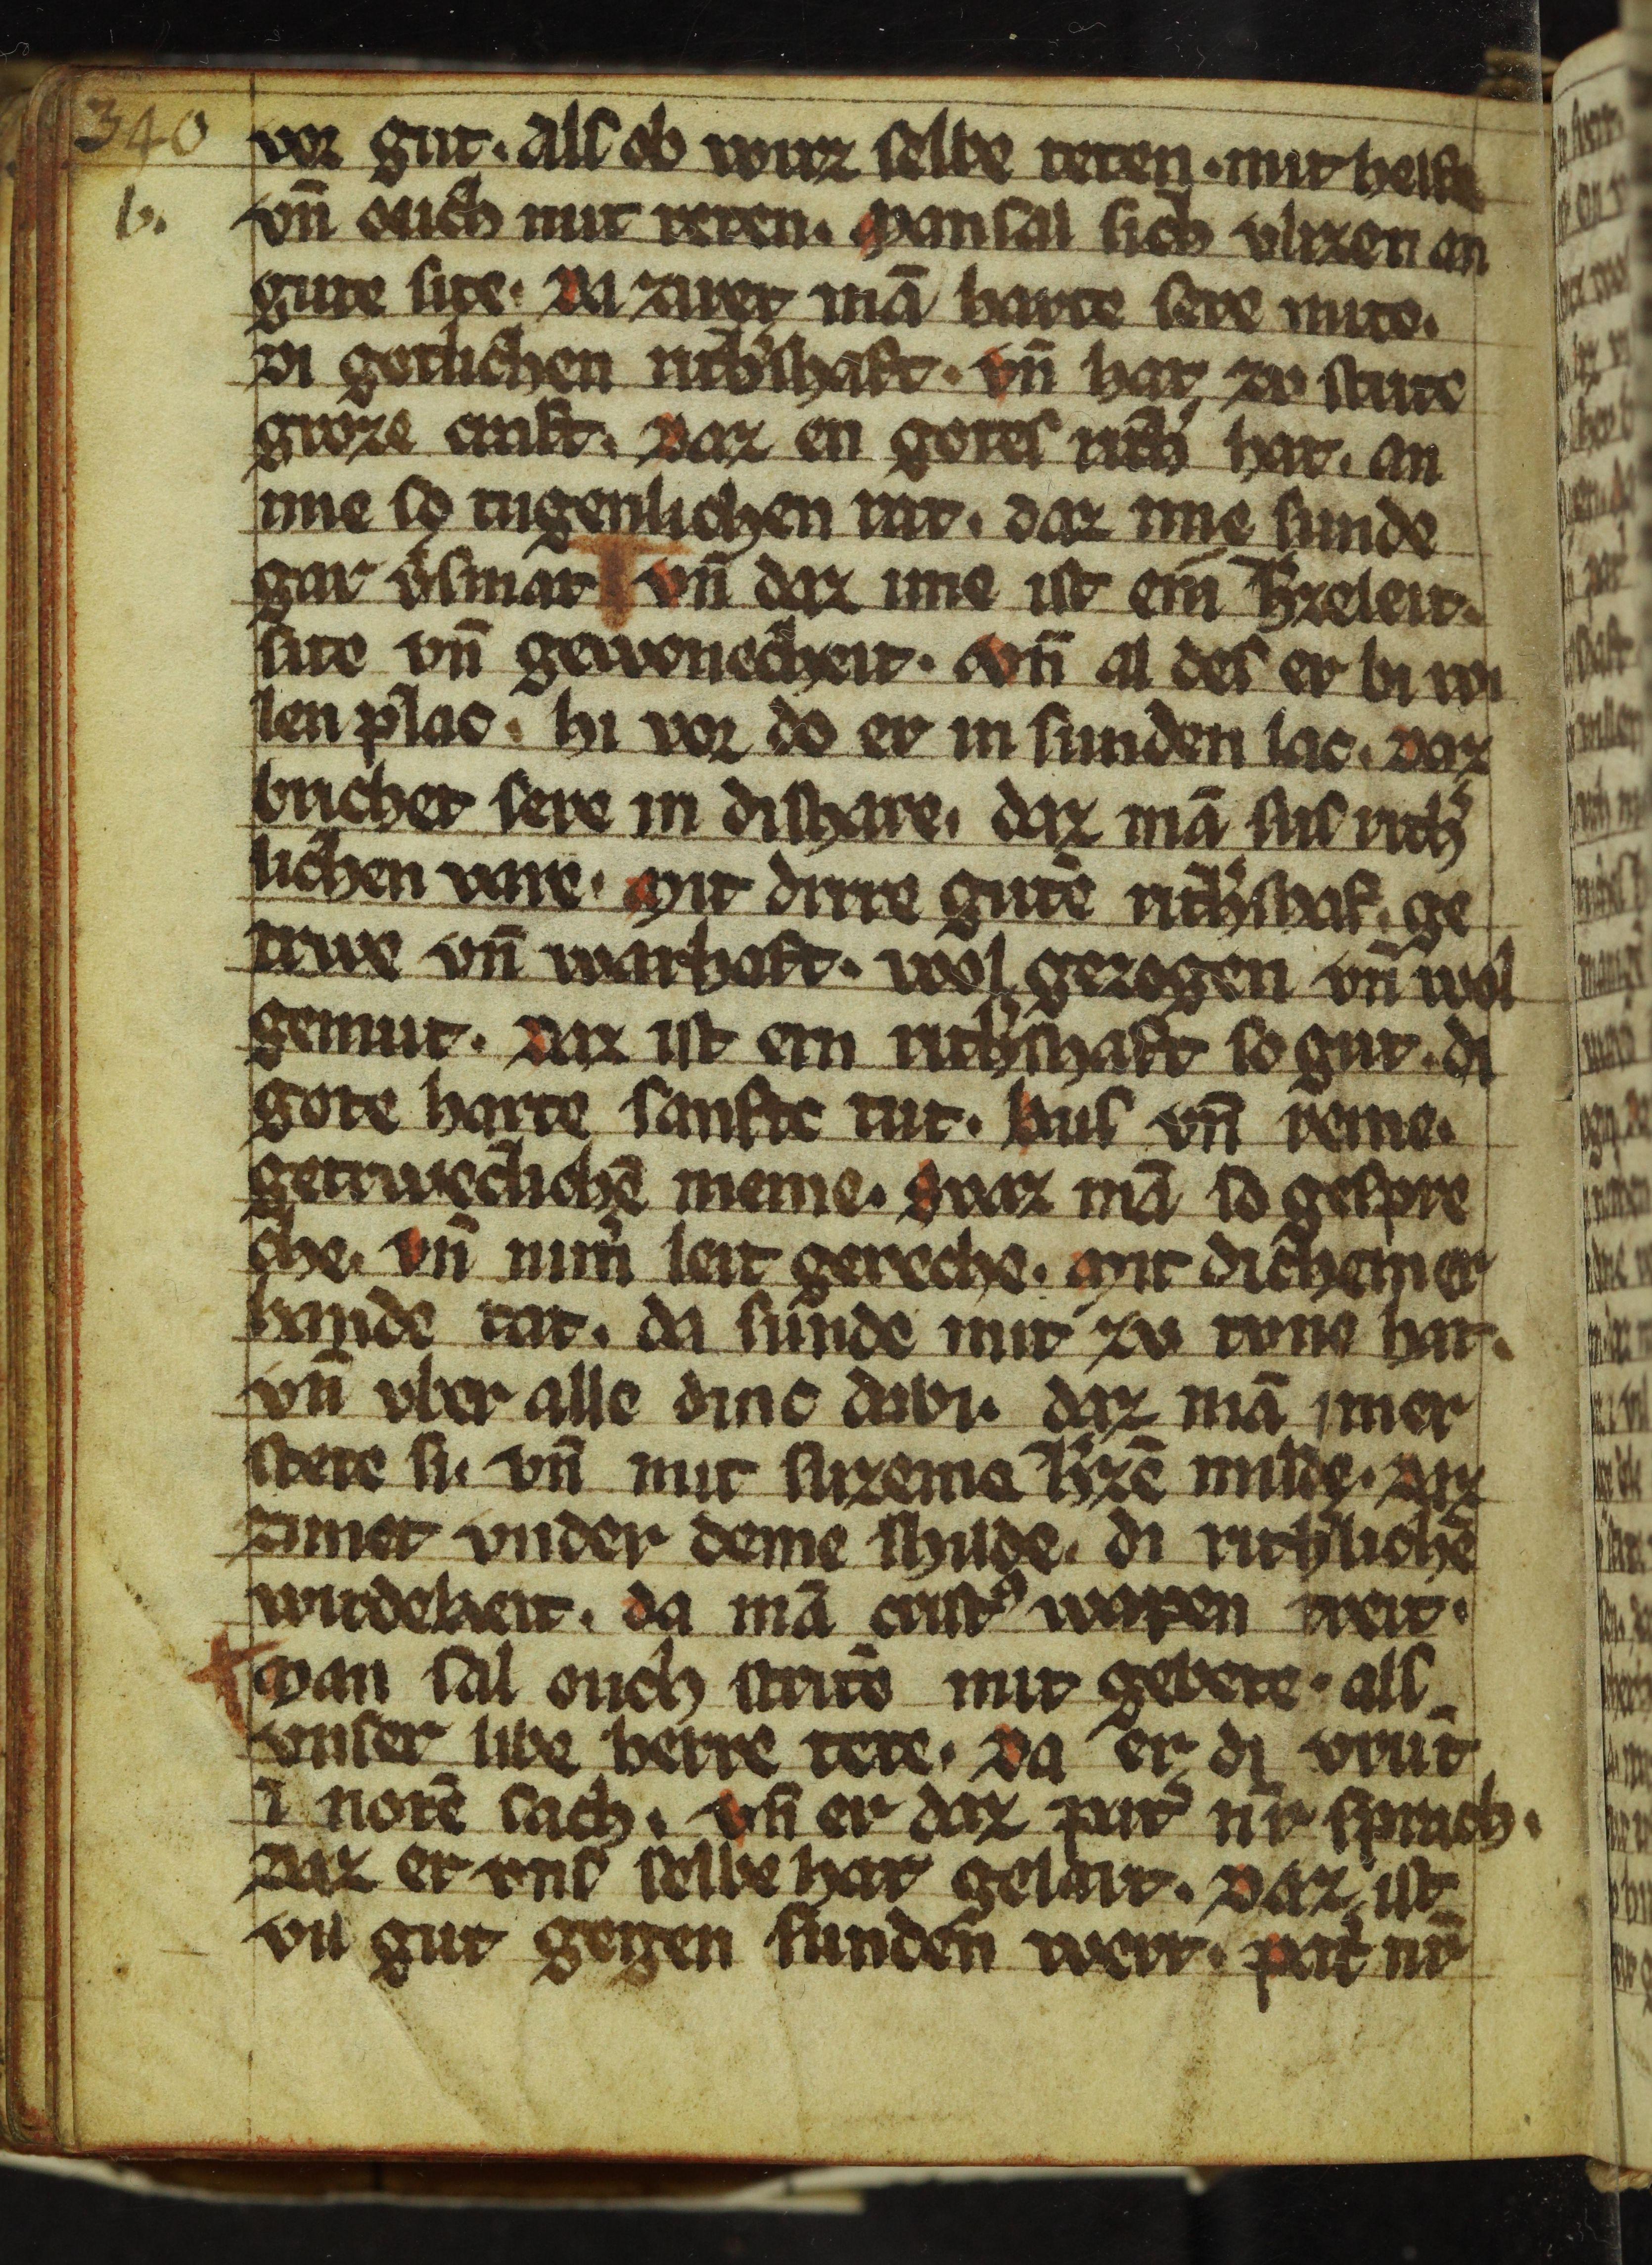 340
b.
vor gut. als ob wirz selbe teten. mit helfe
vn̄ ouch mit reten. Man sal sich vlizen an
gute site. Da zuvet mā harte sere mite.
Di gotlichen ritt'shaft. vn̄ hat zv strite
groze craft. Daz en gotes ritt' hat. an
ime so tugentlichen rat. daz ime sunde
gar v'smat vn̄ daz ime ist ein h'zeleit.
site vn̄ gewonecheit. Vn̄ al des er bi wi
len plac. hi vor do er in sunden lac. Daz
bucher sere in di share. daz mā sus ritt'
lichen vare. Mit dirre gutē ritt'shaf. ge
truwe vn̄ warhaft. wol gezogen vn̄ wol
gemut. Daz ist ein ritt'shaft so gut. di
gote harte sanfte tut. kus vn̄ reine.
getruwelichē meine. Swaz mā so gespre
che. vn̄ nim̄ leit gereche. Mit dicheiner
hande tat. da sunde mit zv tvne hat.
vn̄ vber alle dinc dabi. daz mā imer
stete si. vn̄ mit suzeme h'zē milde. Daz
zimet vnder deme shilde. di ritt'lichē
wirdekeit. da mā crist' wapen treit.
Man sal ouch stritē mit gebete. als
vnser libe herre tete. Da er di vrūt
ī notē sach. Vn̄ er daz pat' nr̄ sprach.
Daz er vns selbe hat gelart. Daz ist
vil gut gegen sunden wert. Pat' nr̄